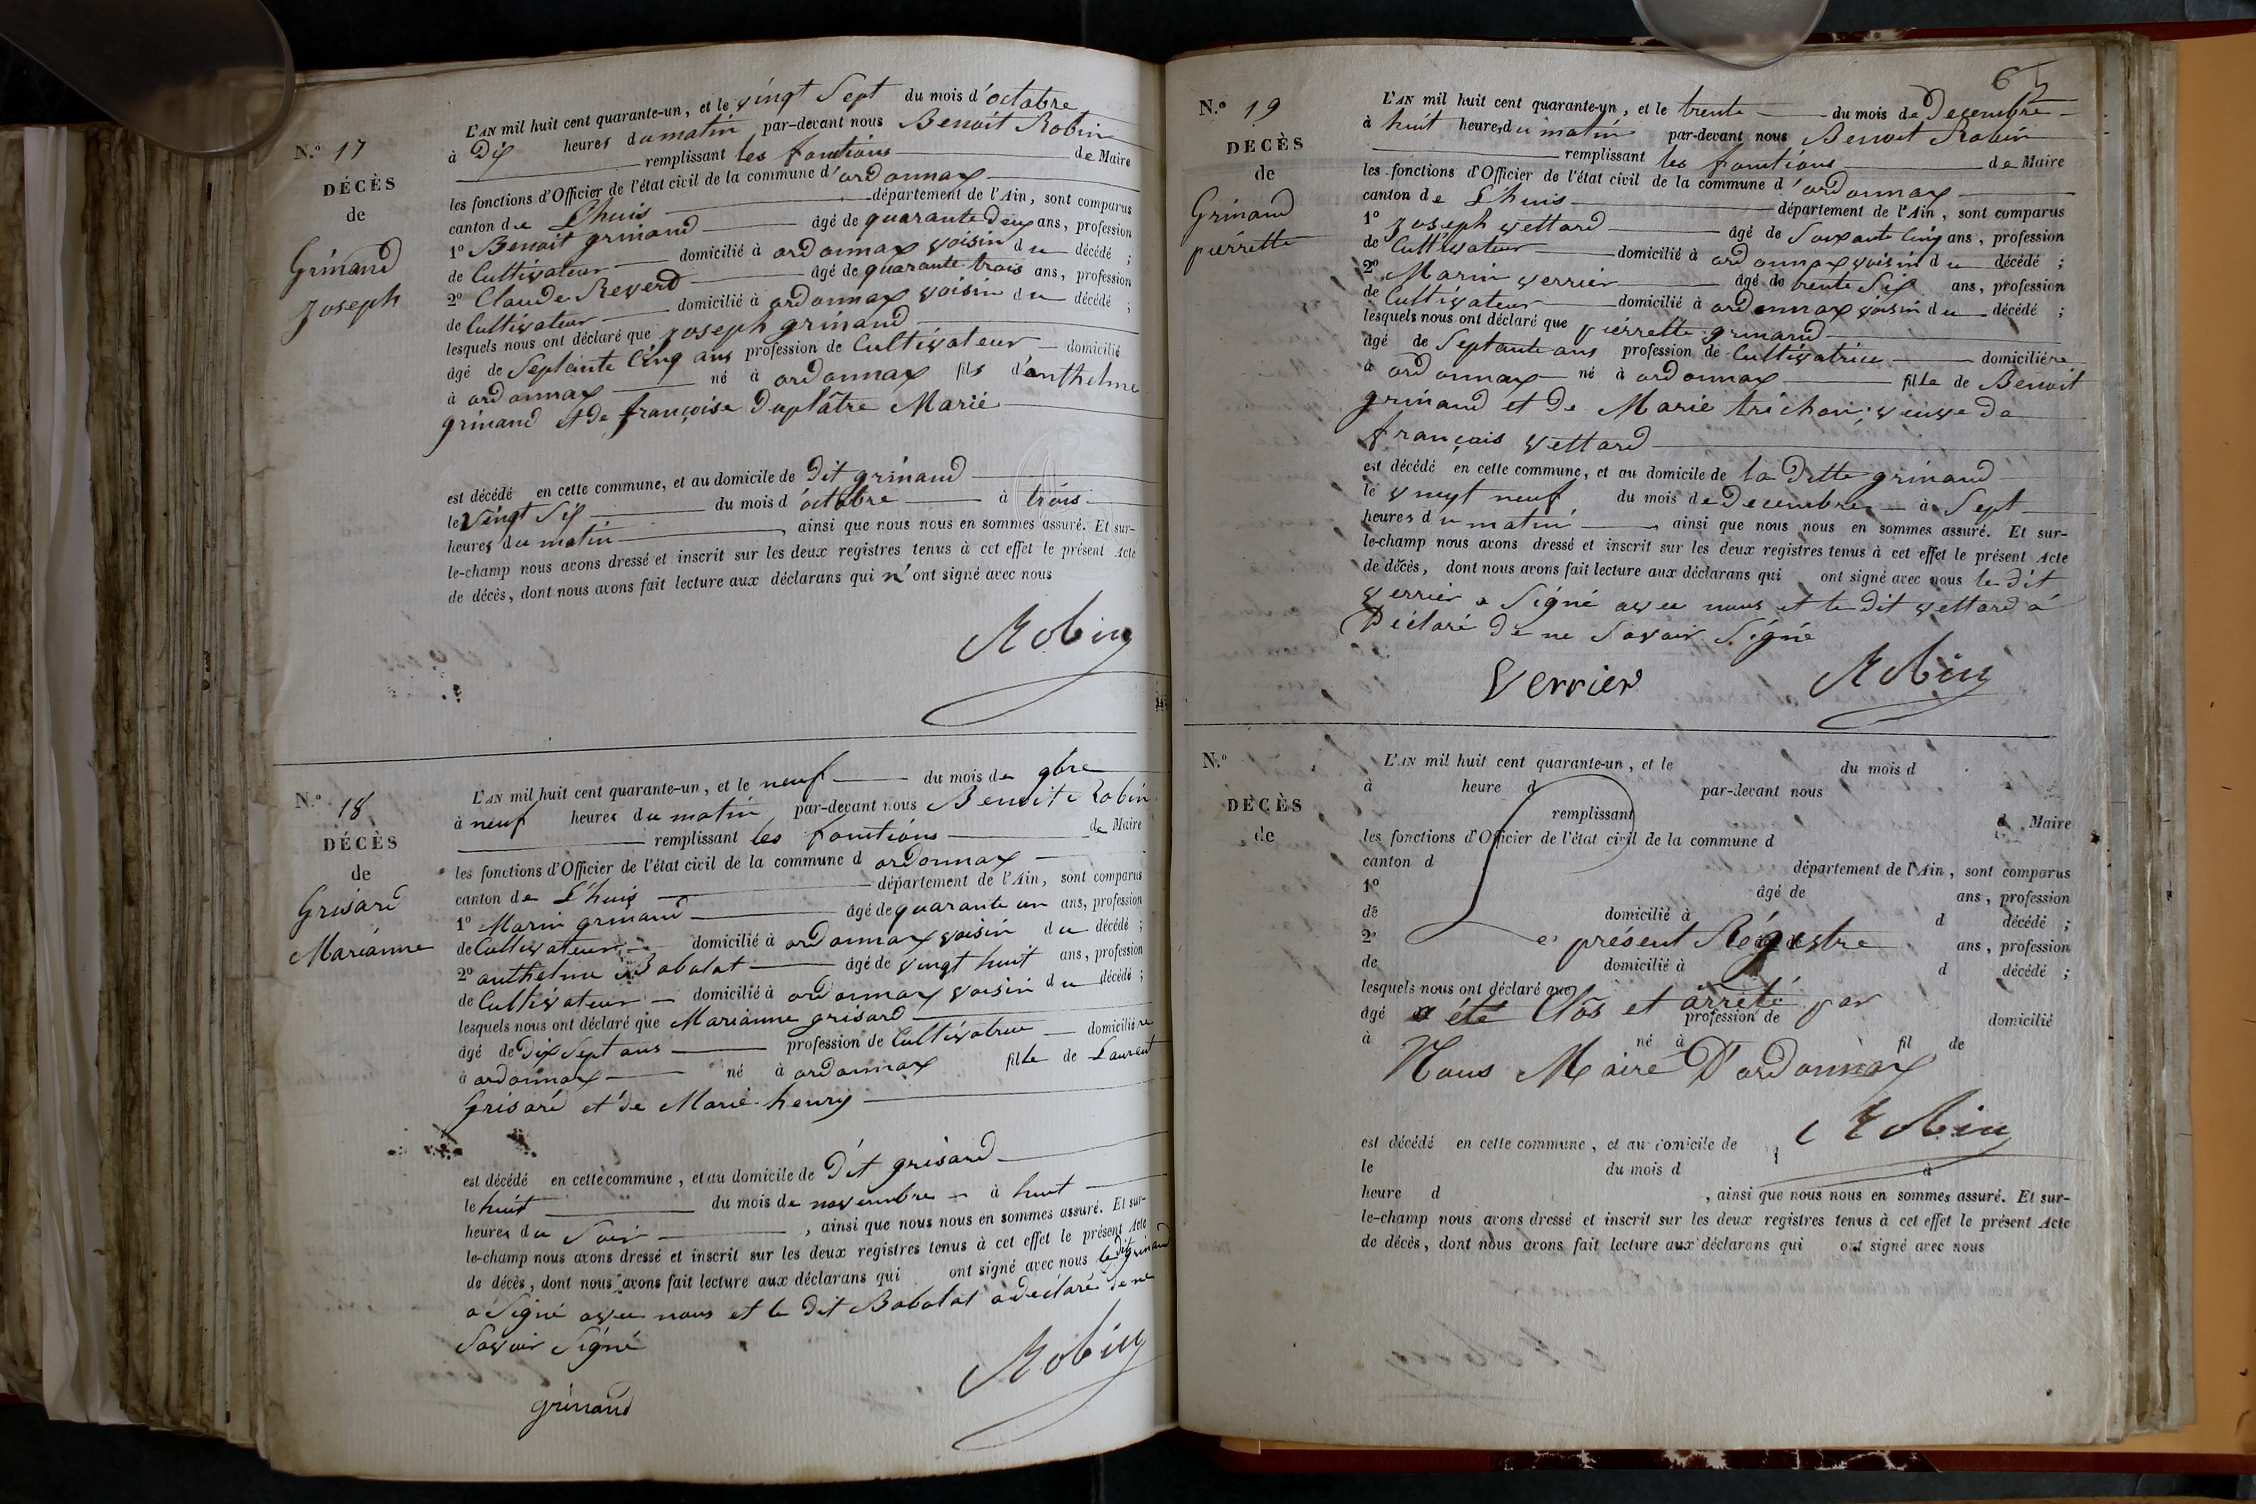 N.º 17
DÉCÈS
de
Grinand
Joseph
L'AN mil huit cent quarante-un, et le vingt Sept du mois d'octobre
à Dix heures du matin par-devant nous Benoit Robin
remplissant les fonctions de Maire
les fonctions d'Officier de l'état civil de la commune d'ordonnax
canton de L'huis département de l'Ain, sont comparus
1º Benoit grinand âgé de quarante deux ans, profession
de Cultivateur domicilié à ordonnax voisin du décédé ;
2º Claude Reverd âgé de quarante trois ans, profession
de Cultivateur domicilié à ordonnax voisin du décédé ;
lesquels nous ont déclaré que Joseph grinand
âgé de Septente Cinq ans profession de Cultivateur domicilié
à ordonnax né à ordonnax fils d'anthelme
grinand et de françoise Duplâtre Marié
est décédé en cette commune, et au domicile de Dit grinand
le Vingt Six du mois d'octobre à trois
heures du matin , ainsi que nous nous en sommes assuré. Et sur-
le-champ nous avons dressé et inscrit sur les deux registres tenus à cet effet le présent Acte
de décès, dont nous avons fait lecture aux déclarans qui n'ont signé avec nous
Robin
N.º 18
DÉCÈS
de
Grisard
Marianne
L'AN mil huit cent quarante-un, et le neuf du mois de 9bre
à neuf heures du matin par-devant nous Benoit Robin
remplissant les fonctions de Maire
les fonctions d'Officier de l'état civil de la commune d ordonnax
canton de L'huis département de l'Ain, sont comparus
1º Marin grinand âgé de quarante un ans, profession
de Cultivateur domicilié à ordonnax voisin du décédé ;
2º anthelme Babolat âgé de vingt huit ans, profession
de Cultivateur domicilié à ordonnax voisin du décédé ;
lesquels nous ont déclaré que Marianne grisard
âgé de Dix Sept ans profession de Cultivatrice domiciliére
à ordonnax né à ordonnax fille de Laurent
Grisard et de Marie henry
est décédé en cette commune, et au domicile de Dit grisard
le huit du mois de novembre à huit
heures du Soir , ainsi que nous nous en sommes assuré. Et sur-
le-champ nous avons dressé et inscrit sur les deux registres tenus à cet effet le présent Acte
de décès, dont nous avons fait lecture aux déclarans qui ont signé avec nous le dit grinand
a Signé avec nous et le Dit Babolat a déclaré de ne
Savoir Signé
grinand
Robin
65
N.º 19
DÉCÈS
de
Grinand
pierrette
L'AN mil huit cent quarante-un, et le trente du mois de Decembre
à huit heures du matin par-devant nous Benoit Robin
remplissant les fonctions de Maire
les fonctions d'Officier de l'état civil de la commune d'ordonnax
canton de L'huis département de l'Ain, sont comparus
1º Joseph Vettard âgé de Soixante Cinq ans, profession
de Cultivateur domicilié à ordonnax voisin du décédé ;
2º Marin Verrier âgé de trente Six ans, profession
de Cultivateur domicilié à ordonnax voisin du décédé ;
lesquels nous ont déclaré que pierrette grinand
âgé de Septante ans profession de Cultivatrice domiciliére
à ordonnax né à ordonnax fille de Benoit
grinand et de Marie trichon, veuve de
françois Vettard
est décédé en cette commune, et au domicile de la Ditte grinand
le vingt neuf du mois de Decembre à Sept
heures du matin , ainsi que nous nous en sommes assuré. Et sur-
le-champ nous avons dressé et inscrit sur les deux registres tenus à cet effet le présent Acte
de décès, dont nous avons fait lecture aux déclarans qui ont signé avec nous le dit
Verrier a Signé avec nous et le Dit Vettard a
Déclaré de ne Savoir Signé
Verrier
Robin
N.º
DÉCÈS
de
L'AN mil huit cent quarante-un, et le du mois d
à heure d par-devant nous
remplissant d Maire
les fonctions d'Officier de l'état civil de la commune d
canton d département de l'Ain, sont comparus
1º âgé de ans, profession
de domicilié à d décédé ;
Le présent Régestre
2º âgé de ans, profession
de domicilié à d décédé ;
lesquels nous ont déclaré que
a été Clos et arrêté par
âgé profession de domicilié
à né à fil de
Nous Maire D'ordonnax
Robin
est décédé en cette commune, et au domicile de
le du mois d à
heure d , ainsi que nous nous en sommes assuré. Et sur-
le-champ nous avons dressé et inscrit sur les deux registres tenus à cet effet le présent Acte
de décès, dont nous avons fait lecture aux déclarans qui ont signé avec nous